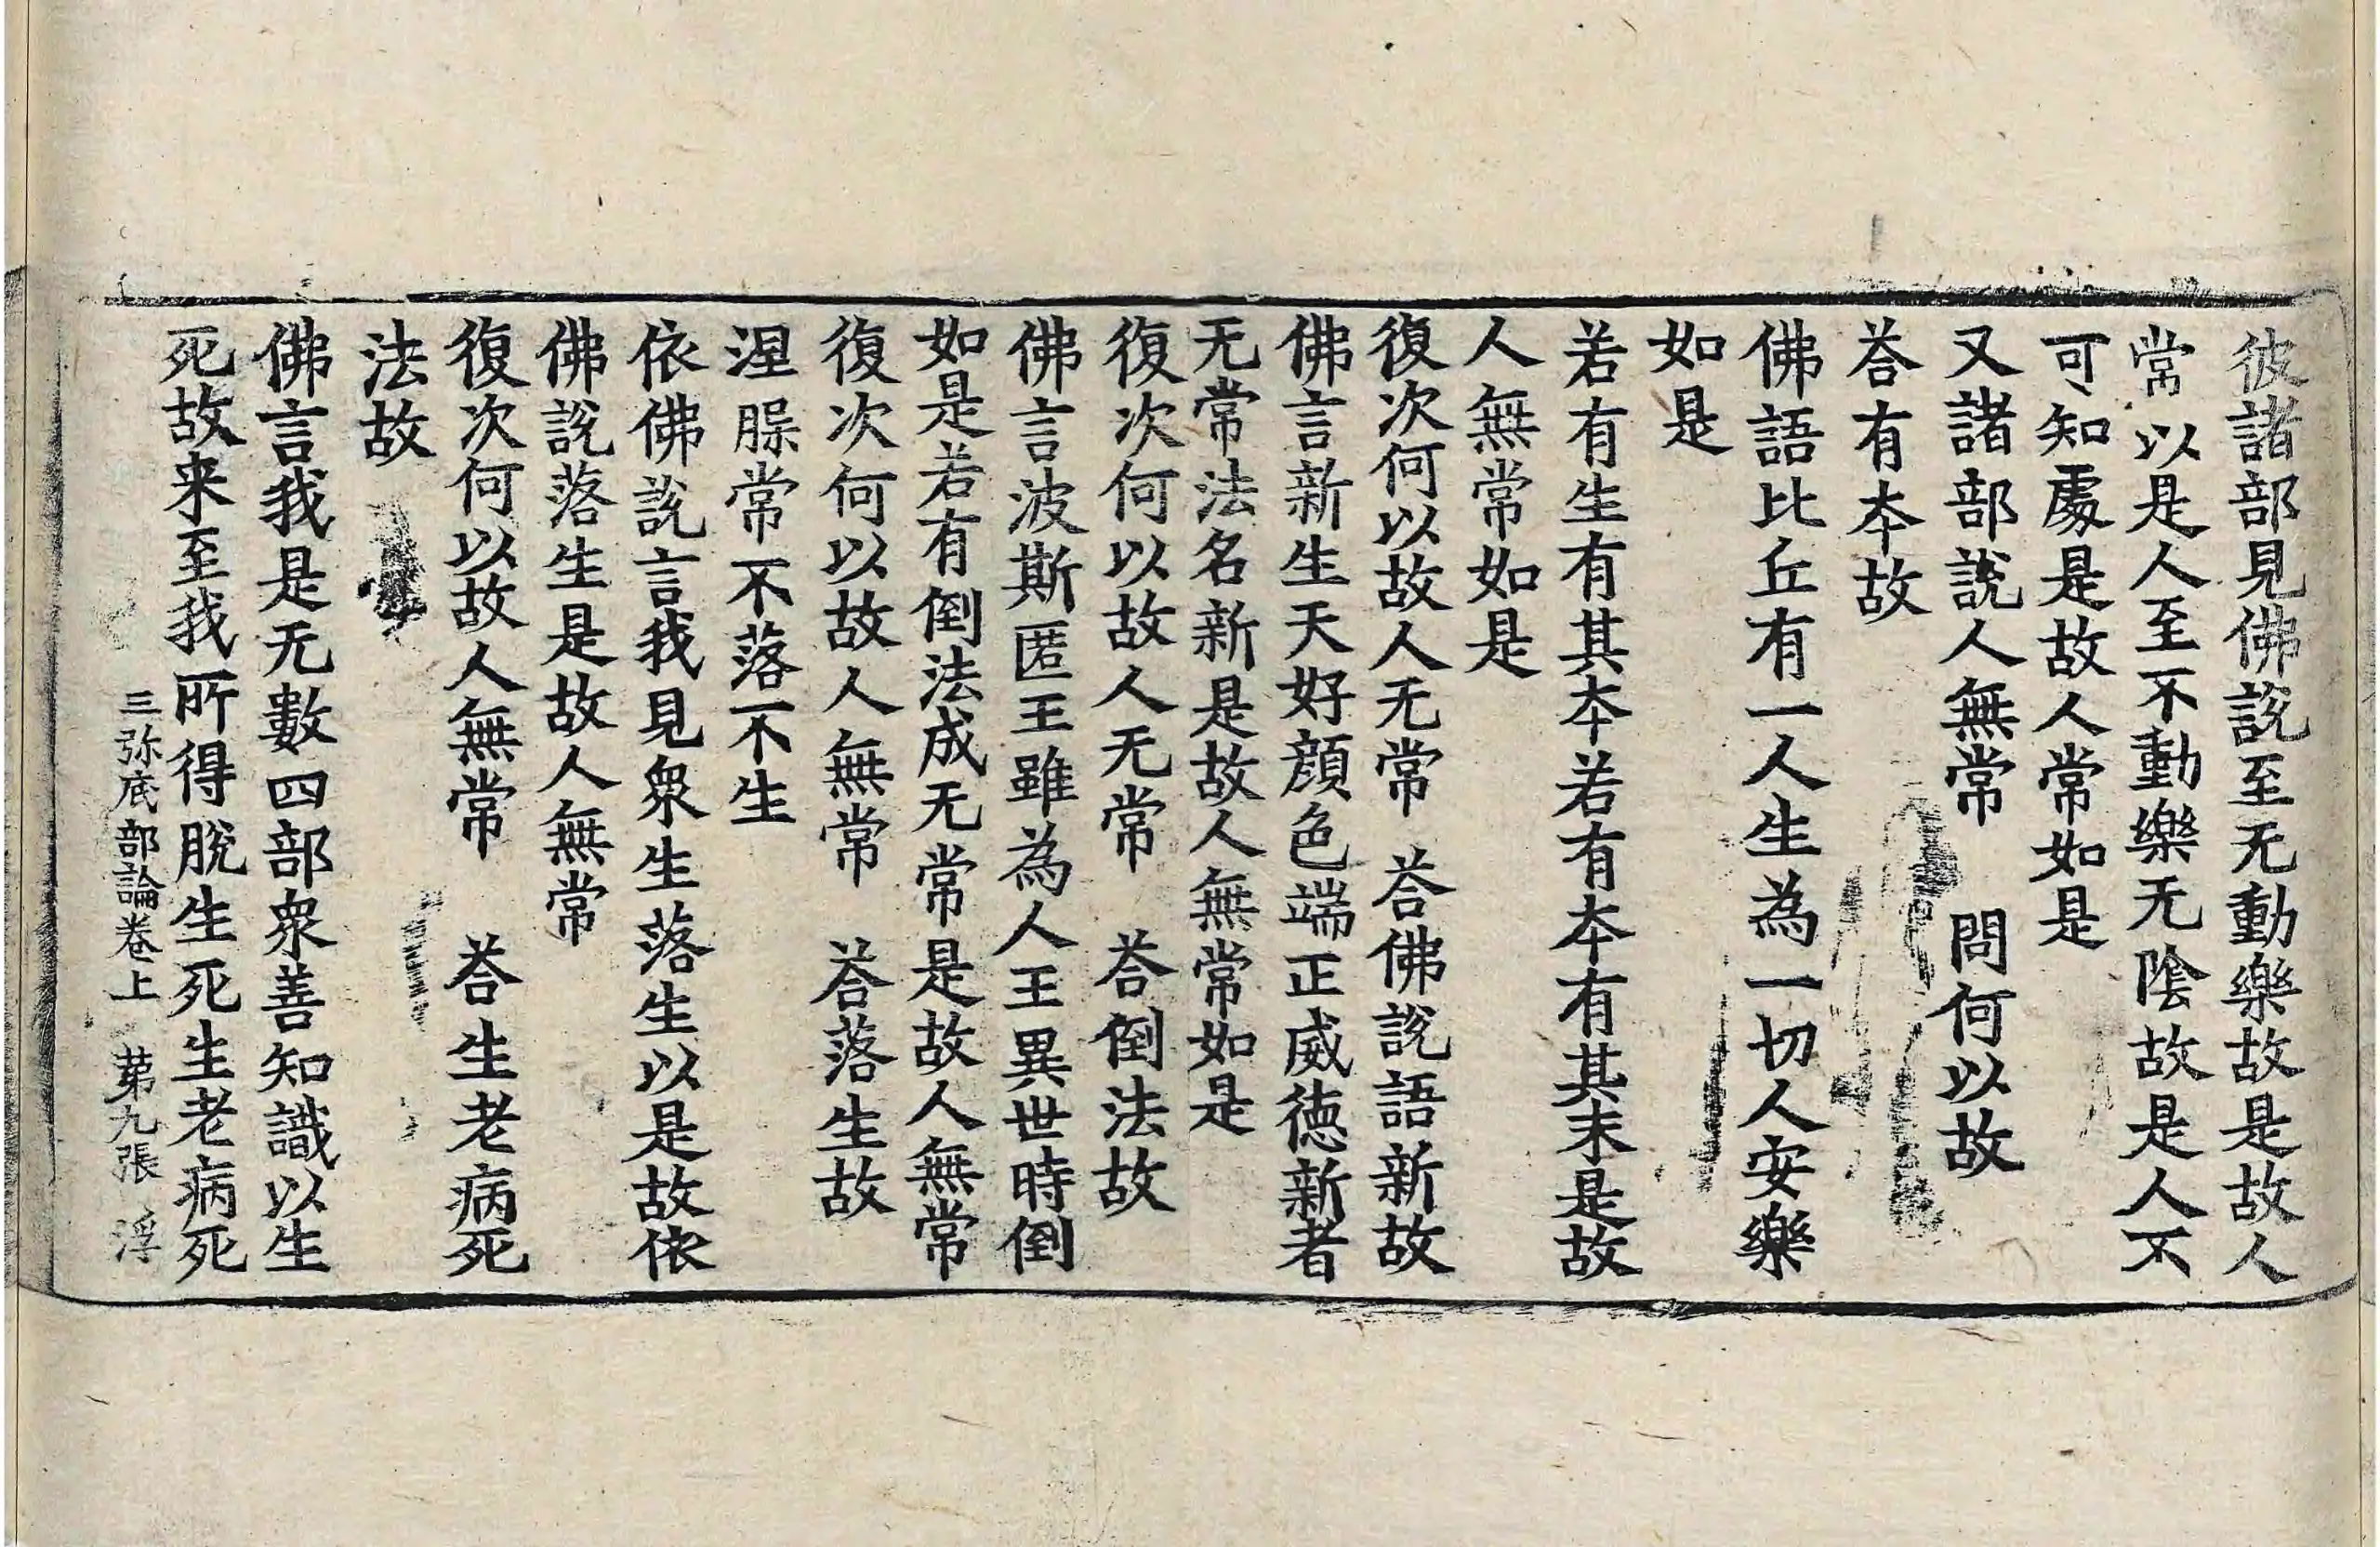 彼諸部見佛說至无動樂故是故人
常以是人至不動樂无陰故是人不
可知處是故人常如是
又諸部說人無常　問何以故
荅有本故
佛語比丘有一人生為一切人安樂
如是
若有生有其本若有本有其末是故
人無常如是
復次何以故人无常　荅佛說語新故
佛言新生天好顔色端正威徳新者
无常法名新是故人無常如是
復次何以故人无常　荅倒法故
佛言波斯匿王雖為人王異世時倒
如是若有倒法成无常是故人無常
復次何以故人無常　荅落生故
涅㬷常不落不生
依佛說言我見衆生落生以是故依
佛說落生是故人無常
復次何以故人無常　荅生老病死
法故
佛言我是无數四部衆善知識以生
死故来至我所得脫生死生老病死
三弥底部論卷上　苐九張　浮